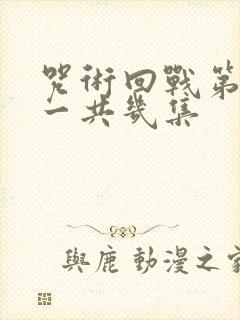 咒術回戰第
一共幾集
與鹿動漫之家